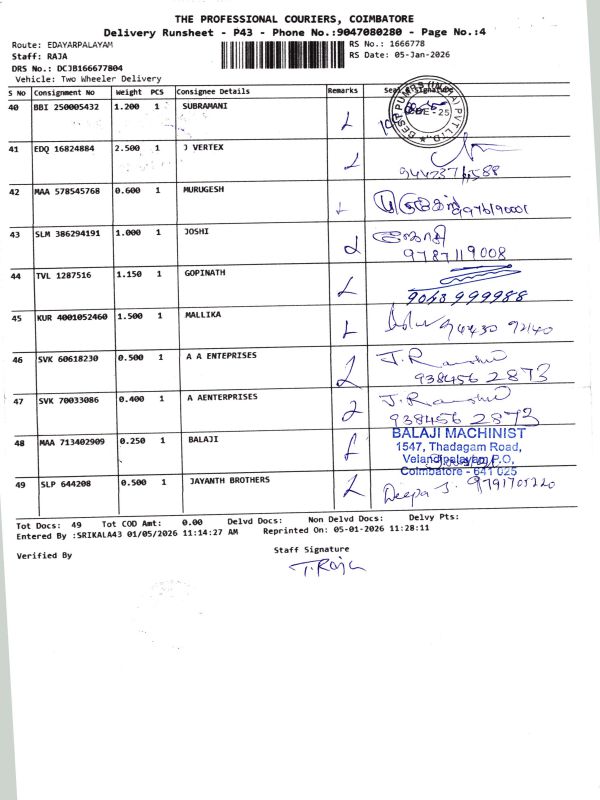 THE PROFESSIONAL COURIERS, COIMBATORE
Delivery Runsheet - P43 - Phone No.:9047080280 - Page No.:4
Route: EDAYARPALAYAM RS No.: 1666778
Staff: RAJA RS Date: 05-Jan-2026
DRS No.: DCJB166677804
Vehicle: Two Wheeler Delivery
S No Consignment No Weight PCS Consignee Details Remarks
40 BBI 250005432 1.200 1 SUBRAMANI
41 EDQ 16824884 2.500 1 J VERTEX
42 MAA 578545768 0.600 1 MURUGESH
43 SLM 386294191 1.000 1 JOSHI
9787119008
44 TVL 1287516 1.150 1 GOPINATH
9043 999988
45 KUR 4001052460 1.500 1 MALLIKA
46 SVK 60618230 0.500 1 A A ENTEPRISES
938456 2873
47 SVK 70033086 0.400 1 A AENTERPRISES
938456 2873
48 MAA 713402909 0.250 1 BALAJI
BALAJI MACHINIST
1547, Thadagam Road,
Velandipalayam P.O,
Coimbatore - 641 025
49 SLP 644208 0.500 1 JAYANTH BROTHERS
Deepa J.
Tot Docs: 49 Tot COD Amt: 0.00 Delvd Docs: Non Delvd Docs: Delvy Pts:
Entered By :SRIKALA43 01/05/2026 11:14:27 AM Reprinted On: 05-01-2026 11:28:11
Verified By Staff Signature
T. Raja